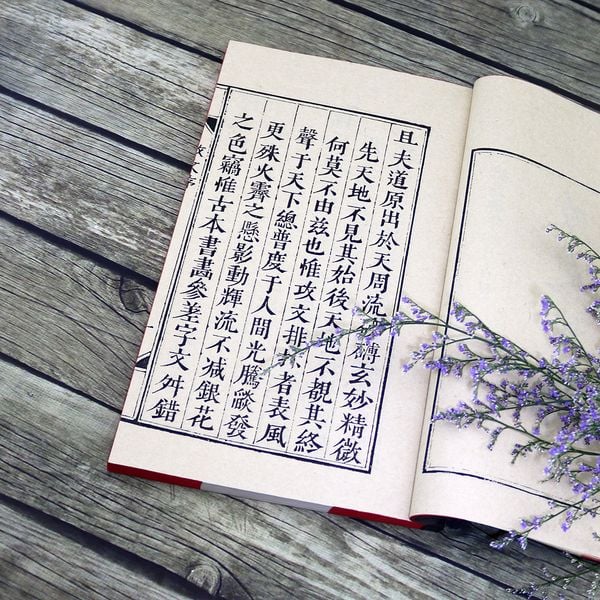 且夫道原出於天周流礴玄妙精微
先天地不見其始後天地不覩其終
何莫不由茲也惟攻文排者表風
聲于天下緫普度于人間光騰燄發
更殊火霽之懸影動輝流不减銀花
之色竊惟古本書參差字文舛錯